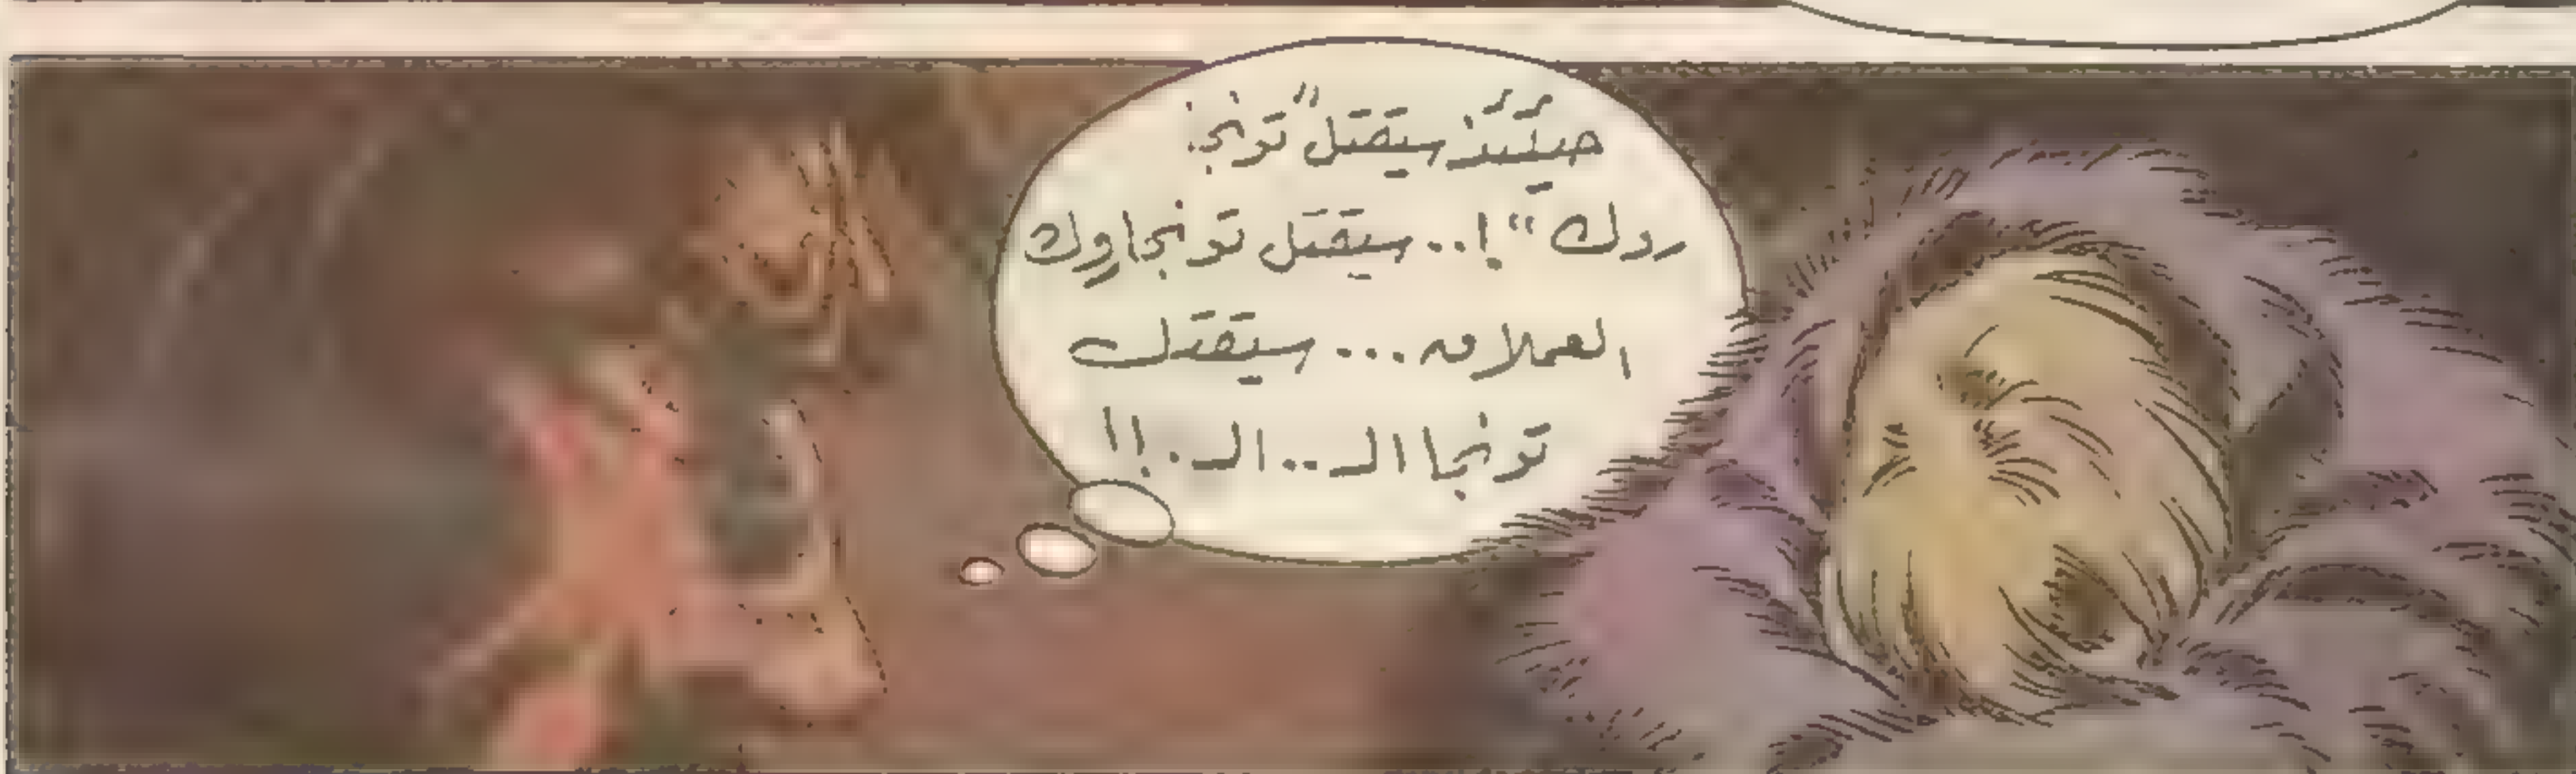 حينئذ سيقتل "تونجا
ردك"!.. سيقتل تونجا ويك
العملاق... سيقتل
تونجا الـ..الـ..!!